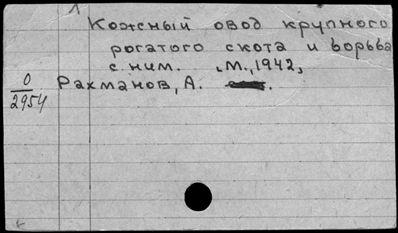 1
Кожный овод крупного
рогатого скота и борьба
с ним. М., 1942,
О
2954
Рахманов, А.